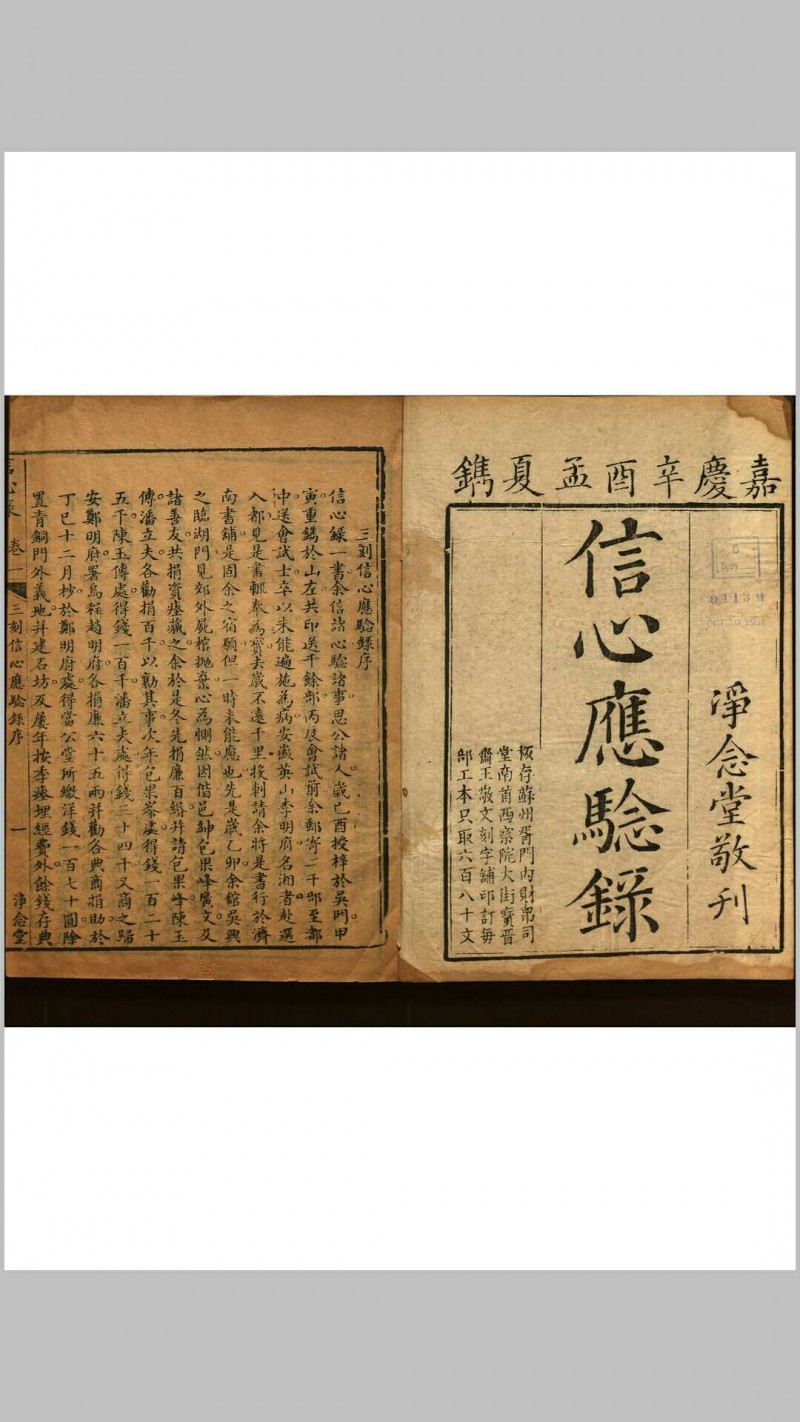 嘉慶辛酉孟夏鐫
淨念堂敬刊
信心應驗錄
板存蘇州胥門內財帛司
堂南首西察院大街寶晉
齋王敬文刻字舖印訂每
部工本只取六百八十文
三刻信心應驗錄序
信心錄一書余信諸心驗諸事思公諸人歲己酉授梓於吳門甲
寅重鐫於山左共印送千餘部丙辰會試前余郵寄二千部至都
中送會試士卒以未能遍施為病安徽英山李明府名湘者赴選
入都見是書輒奉為寶去歲不遠千里投刺請余將是書行於濟
南書舖是固余之宿願但一時未能應也先是歲乙卯余館吳興
之臨湖門見郊外屍棺拋棄心為惻然因偕邑紳包果峰廣文及
諸善友共捐資瘞藏之余於是冬先捐廉百緡并請包果峰陳玉
傳潘立夫各勸捐百千以勷其事次年包果峯處得錢一百二十
五千陳玉傳處得錢一百千潘立夫處得錢三十四千又商之歸
安鄭明府署烏程趙明府各捐廉六十五兩并勸各典商捐助於
丁巳十二月杪於鄭明府處得當公堂所繳洋錢一百七十圓除
置青銅門外義地并建石坊及屢年按季瘞埋經費外餘錢存典
卷一
三刻信心應驗錄序
一
淨念堂